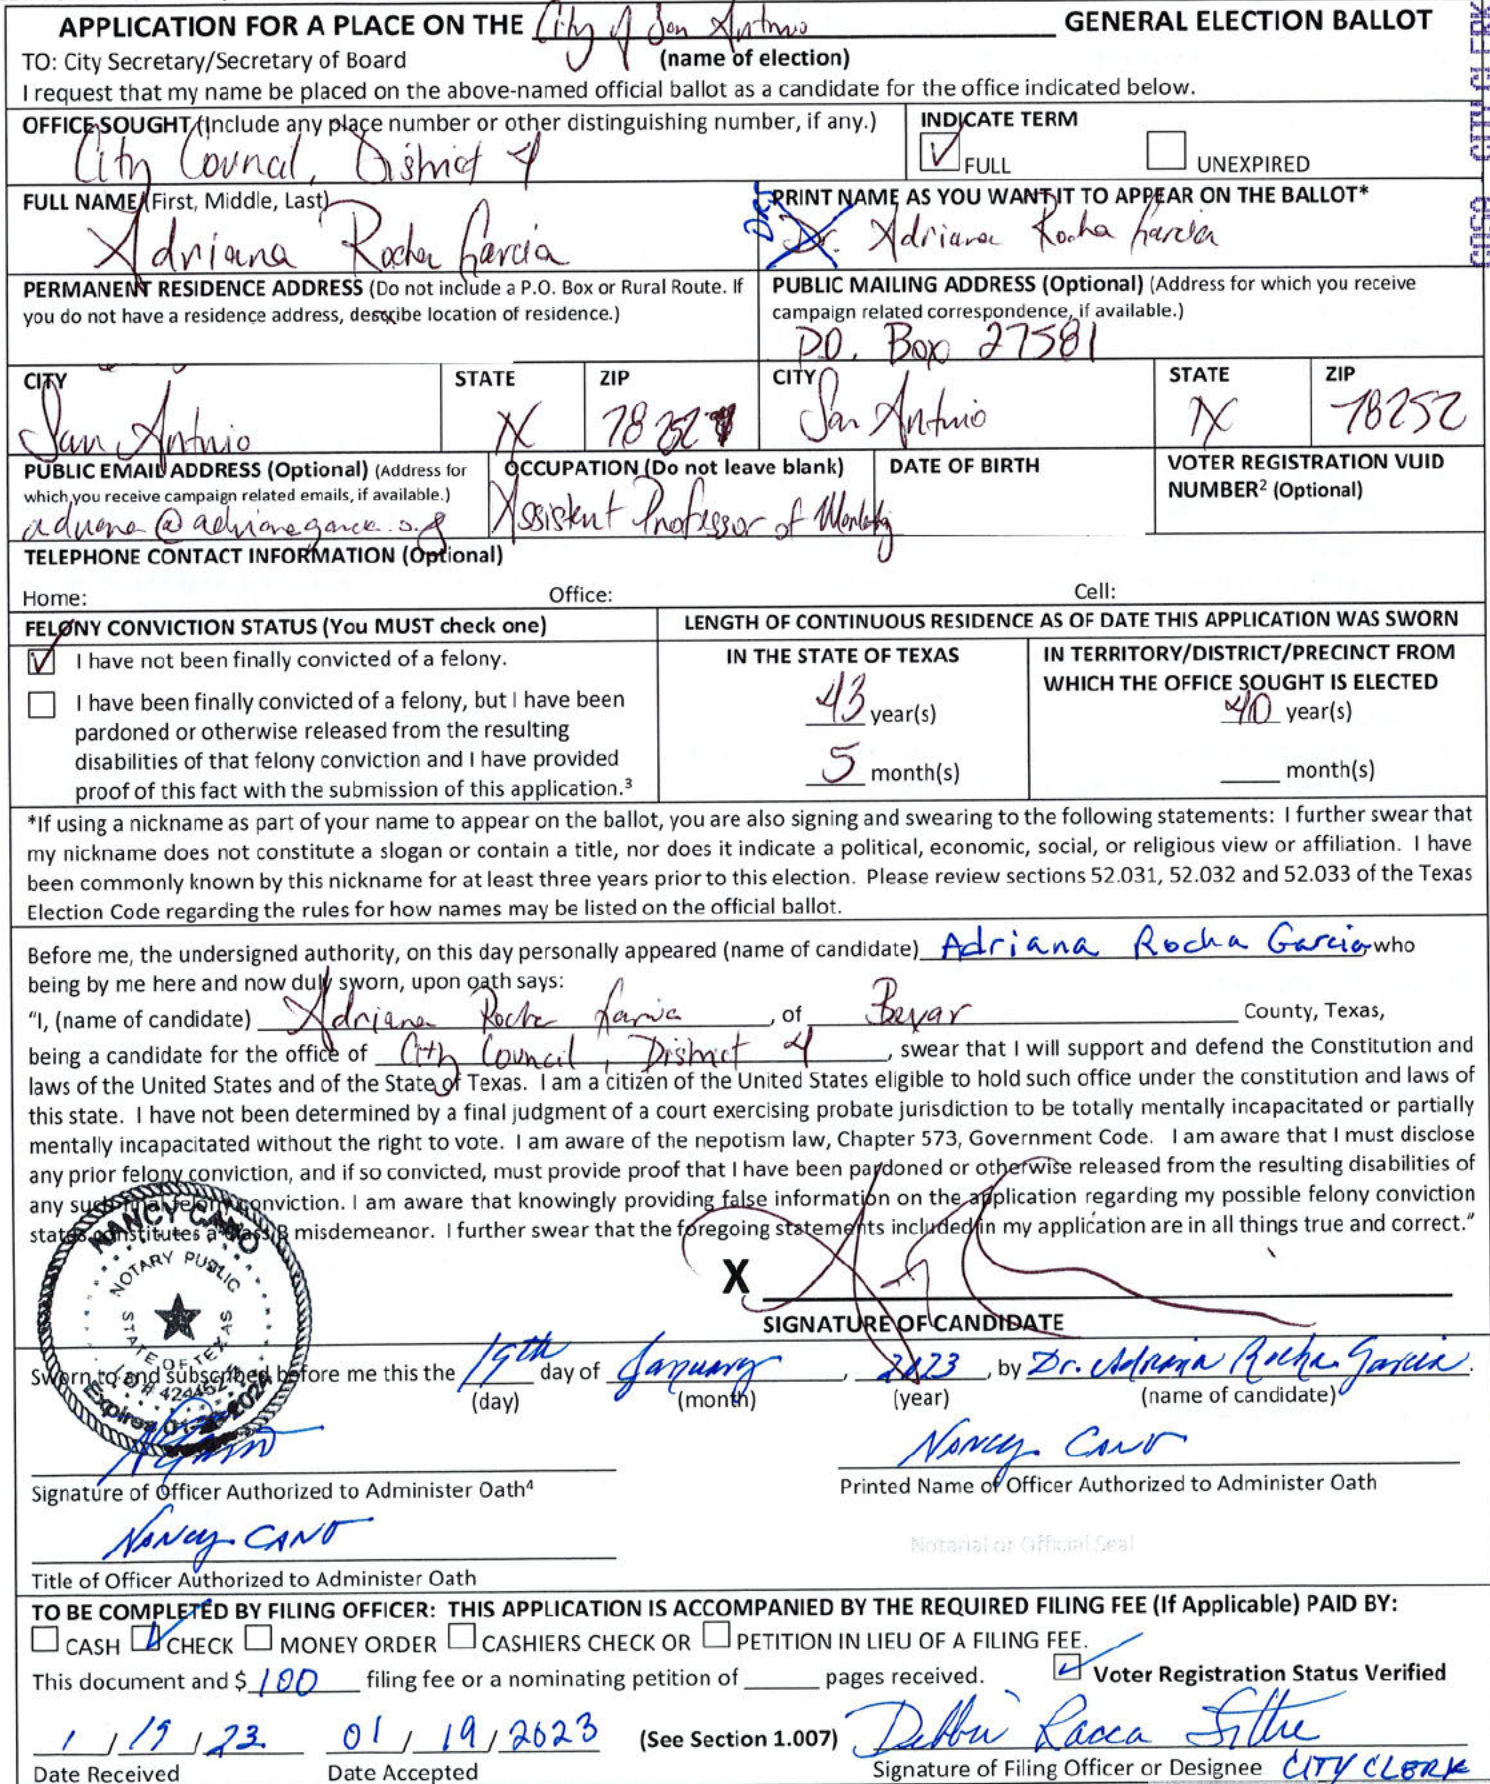 APPLICATION FOR A PLACE ON THE City of San Antonio GENERAL ELECTION BALLOT
TO: City Secretary/Secretary of Board (name of election)
I request that my name be placed on the above-named official ballot as a candidate for the office indicated below.
OFFICE SOUGHT (Include any place number or other distinguishing number, if any.) INDICATE TERM
City Council, District 4 FULL UNEXPIRED
FULL NAME (First, Middle, Last) PRINT NAME AS YOU WANT IT TO APPEAR ON THE BALLOT*
Adriana Rocha Garcia Dr. Adriana Rocha Garcia
PERMANENT RESIDENCE ADDRESS (Do not include a P.O. Box or Rural Route. If you do not have a residence address, describe location of residence.)
PUBLIC MAILING ADDRESS (Optional) (Address for which you receive campaign related correspondence, if available.)
P.O. Box 27581
CITY STATE ZIP CITY STATE ZIP
San Antonio TX 78252 San Antonio TX 78252
PUBLIC EMAIL ADDRESS (Optional) (Address for which you receive campaign related emails, if available.)
OCCUPATION (Do not leave blank) DATE OF BIRTH VOTER REGISTRATION VUID NUMBER² (Optional)
Assistant Professor of
TELEPHONE CONTACT INFORMATION (Optional)
Home: Office: Cell:
FELONY CONVICTION STATUS (You MUST check one)
I have not been finally convicted of a felony.
I have been finally convicted of a felony, but I have been
pardoned or otherwise released from the resulting
disabilities of that felony conviction and I have provided
proof of this fact with the submission of this application.³
LENGTH OF CONTINUOUS RESIDENCE AS OF DATE THIS APPLICATION WAS SWORN
IN THE STATE OF TEXAS
43 year(s)
5 month(s)
IN TERRITORY/DISTRICT/PRECINCT FROM
WHICH THE OFFICE SOUGHT IS ELECTED
40 year(s)
month(s)
*If using a nickname as part of your name to appear on the ballot, you are also signing and swearing to the following statements: I further swear that
my nickname does not constitute a slogan or contain a title, nor does it indicate a political, economic, social, or religious view or affiliation. I have
been commonly known by this nickname for at least three years prior to this election. Please review sections 52.031, 52.032 and 52.033 of the Texas
Election Code regarding the rules for how names may be listed on the official ballot.
Before me, the undersigned authority, on this day personally appeared (name of candidate) Adriana Rocha Garcia who
being by me here and now duly sworn, upon oath says:
"I, (name of candidate) Adriana Rocha Garcia, of Bexar County, Texas,
being a candidate for the office of City Council, District 4, swear that I will support and defend the Constitution and
laws of the United States and of the State of Texas. I am a citizen of the United States eligible to hold such office under the constitution and laws of
this state. I have not been determined by a final judgment of a court exercising probate jurisdiction to be totally mentally incapacitated or partially
mentally incapacitated without the right to vote. I am aware of the nepotism law, Chapter 573, Government Code. I am aware that I must disclose
any prior felony conviction, and if so convicted, must provide proof that I have been pardoned or otherwise released from the resulting disabilities of
any such final felony conviction. I am aware that knowingly providing false information on the application regarding my possible felony conviction
status constitutes a Class B misdemeanor. I further swear that the foregoing statements included in my application are in all things true and correct."
X
SIGNATURE OF CANDIDATE
NANCY CANO
NOTARY PUBLIC
STATE OF TEXAS
Sworn to and subscribed before me this the 19th day of January, 2023, by Dr. Adriana Rocha Garcia.
(day) (month) (year) (name of candidate)
Nancy Cano
Signature of Officer Authorized to Administer Oath⁴ Printed Name of Officer Authorized to Administer Oath
Nancy CANO
Notarial or Official Seal
Title of Officer Authorized to Administer Oath
TO BE COMPLETED BY FILING OFFICER: THIS APPLICATION IS ACCOMPANIED BY THE REQUIRED FILING FEE (If Applicable) PAID BY:
CASH CHECK MONEY ORDER CASHIERS CHECK OR PETITION IN LIEU OF A FILING FEE.
This document and $ 100 filing fee or a nominating petition of pages received. Voter Registration Status Verified
1 / 19 / 23 01 / 19 / 2023 (See Section 1.007) Debbie Racca Sittre
Date Received Date Accepted Signature of Filing Officer or Designee CITY CLERK